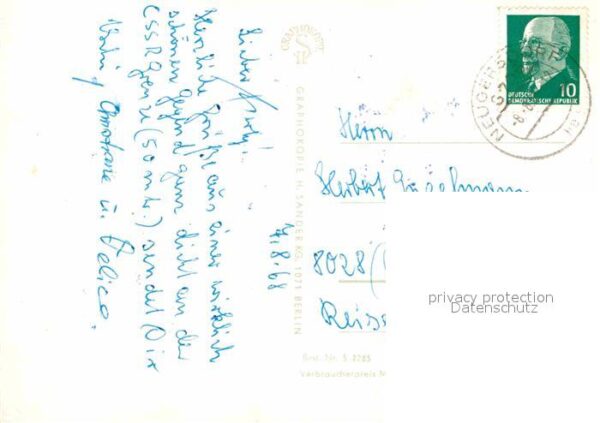 Lieber
7.8.68
Herzliche Grüße aus einer wirklich
schönen Gegend ganz dicht an der
CSSR Grenze (50 mtr.) sendet Dir
u.
GRAPHOKOPIE
GRAPHOKOPIE H. SANDER KG, 1071 BERLIN
Best.-Nr. S
Verbraucherpreis M
Herrn
Herbert
8028
10
DEUTSCHE
DEMOKRATISCHE REPUBLIK
NEUGERSDORF
privacy protection
Datenschutz